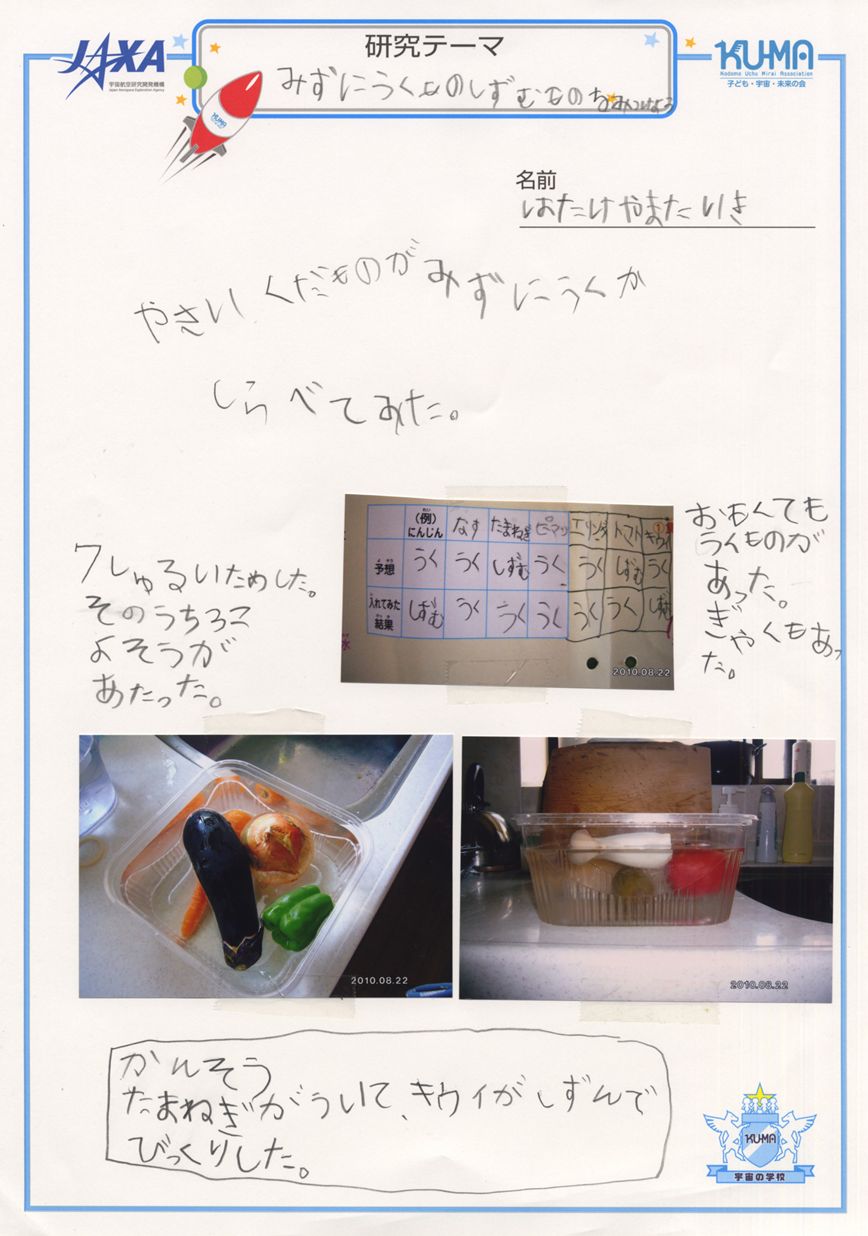 JAXA
宇宙航空研究開発機構
Japan Aerospace Exploration Agency
研究テーマ
みずにうくものしずむものをみつけよう
KU-MA
Kodomo Uchu Mirai Association
子ども・宇宙・未来の会
KU-MA
名前
はたけやまたいき
やさい くだものがみずにうくか
しらべてみた。
7しゅるいためした。
そのうちろこ
よそうが
あたった。
(例) にんじん なす たまねぎ ピーマン エリンギ トマト キウイ
予想 うく うく しずむ うく うく しずむ うく
入れてみた結果 しずむ うく うく うく うく うく しずむ
2010.08.22
おもくても
うくものが
あった。
ぎゃくもあっ
た。
2010.08.22
2010.08.22
かんそう
たまねぎがういて、キウイがしずんで
びっくりした。
KU-MA
宇宙の学校